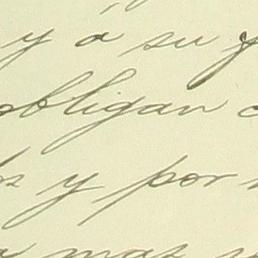 y á su
obligan
y por
mas